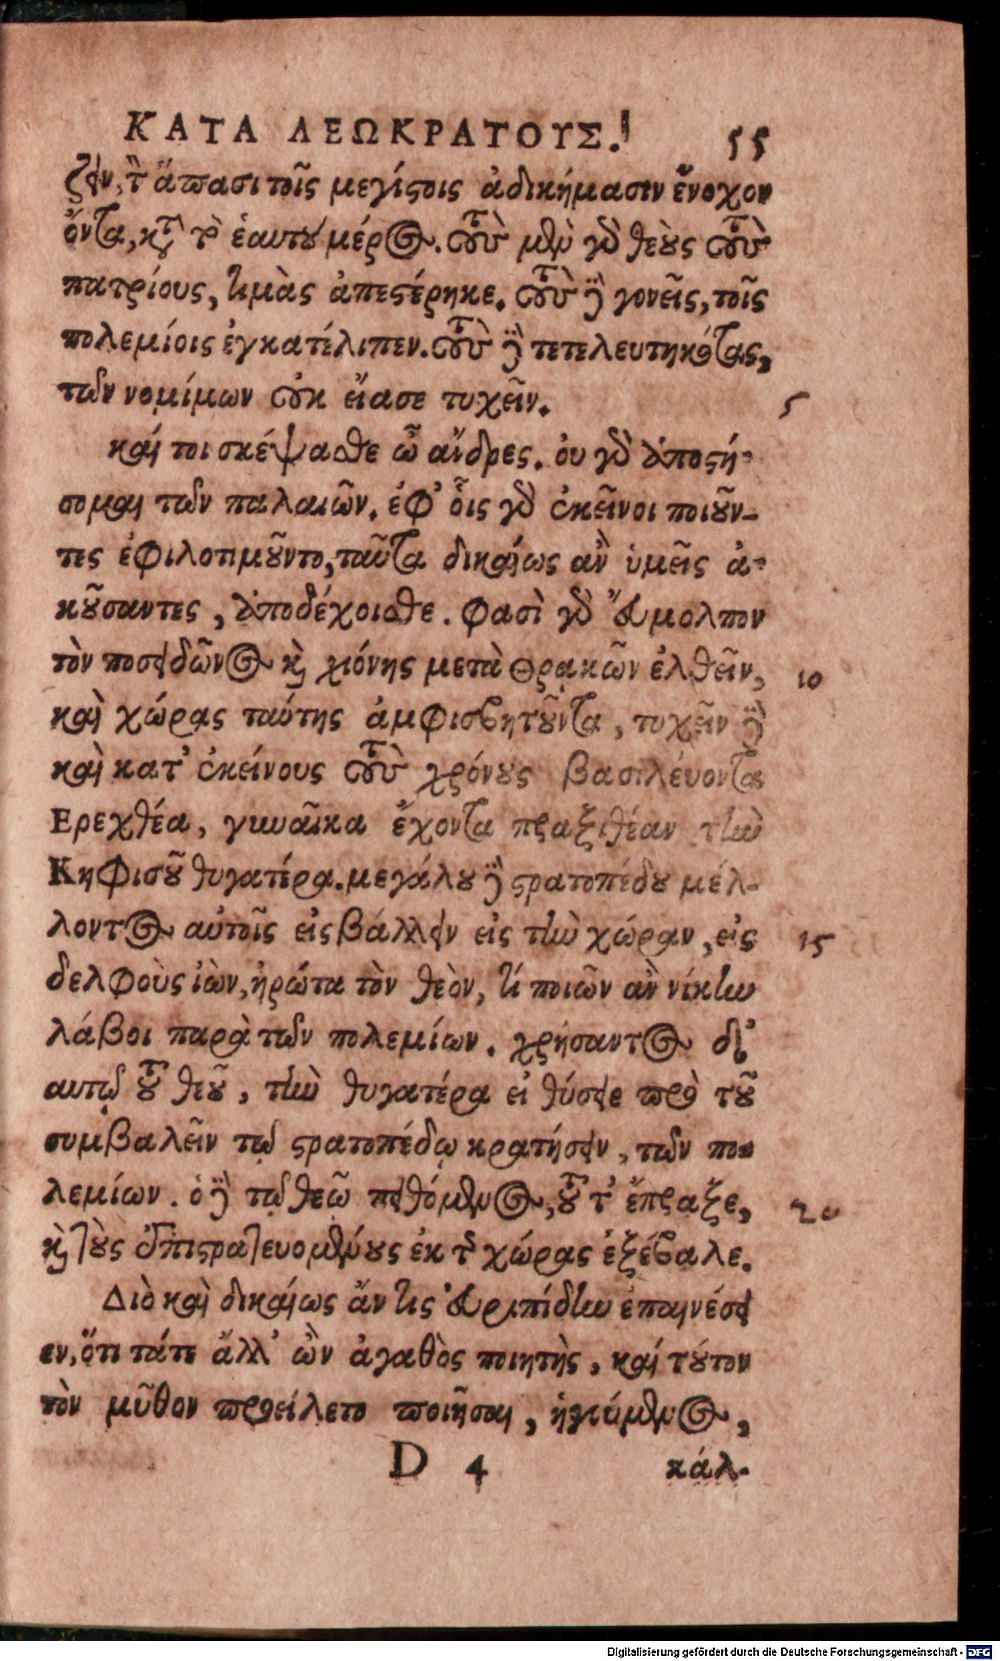 ΚΑΤΑ ΛΕΩΚΡΑΤΟΥΣ. 55
ζειν, τὸν ἅπασι τοῖς μεγίστοις ἀδικήμασιν ἔνοχον
ὄντα, κατὰ τὸ ἑαυτοῦ μέρος. τοὺς μὲν γὰρ θεοὺς τοὺς
πατρίους, τιμὰς ἀπεστέρηκε. τοὺς δὲ γονεῖς, τοῖς
πολεμίοις ἐγκατέλιπεν. τοὺς δὲ τετελευτηκότας,
τῶν νομίμων οὐκ εἴασε τυχεῖν. 5
καί τοι σκέψασθε ὦ ἄνδρες. οὐ γὰρ ἀποστή-
σομαι τῶν παλαιῶν. ἐφ' οἷς γὰρ ἐκεῖνοι ποιοῦν-
τες ἐφιλοτιμοῦντο, ταῦτα δικαίως ἂν ὑμεῖς ἀ-
κούσαντες, ἀποδέχοισθε. φασὶ γὰρ Εὔμολπον
τὸν ποσειδῶνος καὶ χιόνης μετὰ Θρᾳκῶν ἐλθεῖν, 10
καὶ χώρας ταύτης ἀμφισβητοῦντα, τυχεῖν δὲ
καὶ κατ' ἐκείνους τοὺς χρόνους βασιλεύοντα
Ερεχθέα, γυναῖκα ἔχοντα πραξιθέαν τὴν
Κηφισοῦ θυγατέρα. μεγάλου δὲ στρατοπέδου μέλ-
λοντος αὐτοῖς εἰσβάλλειν εἰς τὴν χώραν, εἰς 15
δελφοὺς ἰὼν, ἠρώτα τὸν θεὸν, τί ποιῶν ἂν νίκην
λάβοι παρὰ τῶν πολεμίων. χρήσαντος δ'
αὐτῷ τοῦ θεοῦ, τὴν θυγατέρα εἰ θύσειε πρὸ τοῦ
συμβαλεῖν τῷ στρατοπέδῳ κρατήσειν, τῶν πο-
λεμίων. ὁ δὲ τῷ θεῷ πειθόμενος, τοῦτ' ἔπραξε, 20
καὶ τοὺς ἐπιστρατευομένους ἐκ τῆς χώρας ἐξέβαλε.
Διὸ καὶ δικαίως ἄν τις Εὐριπίδην ἐπαινέσει
εν, ὅτι τάτε ἄλλ' ὢν ἀγαθὸς ποιητὴς, καί τοῦτον
τὸν μῦθον προείλετο ποιῆσαι, ἡγούμενος,
D 4 κάλ-
Digitalisierung gefördert durch die Deutsche Forschungsgemeinschaft - DFG